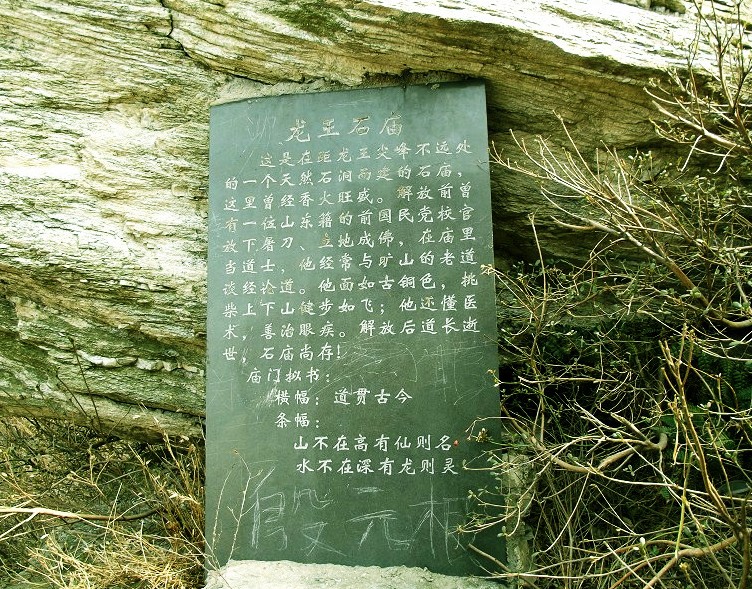 龙王石庙
这是在距龙王尖峰不远处
的一个天然石洞而建的石庙，
这里曾经香火旺盛。解放前曾
有一位山东籍的前国民党校官
放下屠刀、立地成佛，在庙里
当道士，他经常与旷山的老道
谈经论道。他面如古铜色，挑
柴上下山健步如飞；他还懂医
术，善治眼疾。解放后道长逝
世，石庙尚存！
庙门拟书：
横幅：道贯古今
条幅：
山不在高有仙则名
水不在深有龙则灵
段元